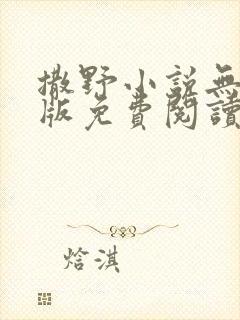 撒野小説無
版免費閱讀
焓淇